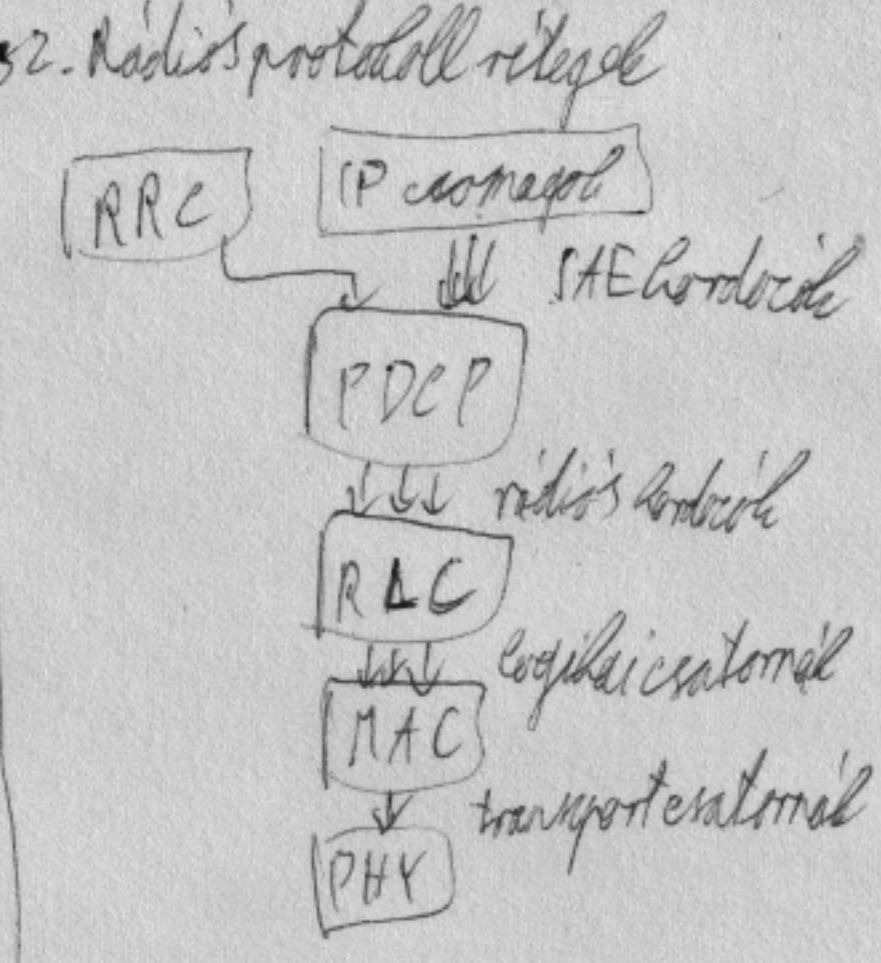 32. Rádiós protokoll rétegek
RRC
IP csomagok
SAE hordozók
PDCP
rádiós hordozók
RLC
logikai csatornák
MAC
transport csatornák
PHY